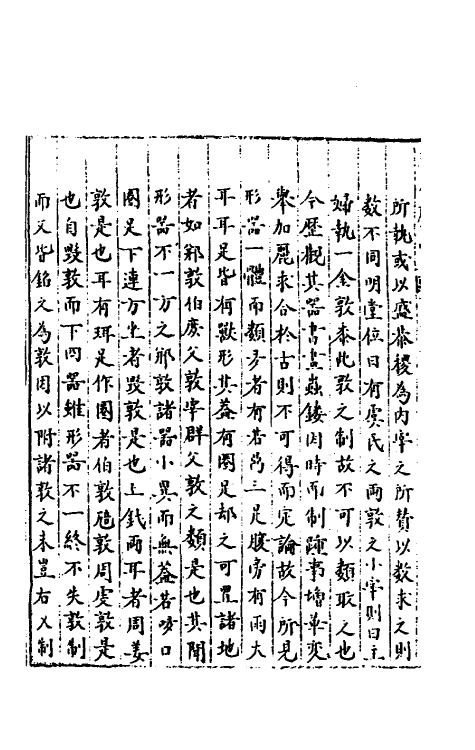 所執或以盛黍稷為內宰之所贊以數求之則
數不同明堂位曰有虞氏之兩敦之小宰則曰主
婦執一金敦黍此敦之制故不可以類取之也
今歷觀其器書畫蟲鏤因時而制踵事增華變
舉加麗求合於古則不可得而定論故今所見
形器一體而類多者有若鬲三足腹旁有兩大
耳耳足皆有獸形其葢有圈足却之可置諸地
者如郑敦伯庶父敦宰群父敦之類是也其間
形器不一方之郑敦諸器小異而無葢若哆口
圈足下連方坐者毀敦是也上錢兩耳者周姜
敦是也耳有珥足作圈者伯敦虺敦周虔敦是
也自毀敦而下四器雖形器不一終不失敦制
而又皆銘之為敦因以附諸敦之末豈右人制